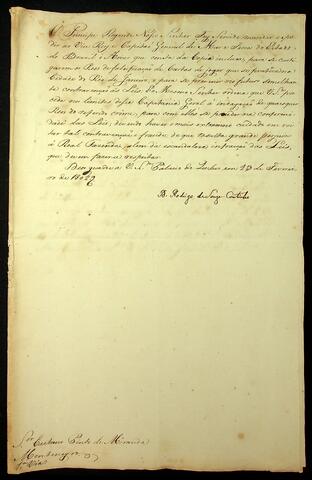 O Principe Regente Nosso Senhor Foy Servido mandar expe-
dir ao Vice Rey e Capitão General de Mar e Terra do Estado
do Brazil o Aviso que consta da Copia inclusa, para se casti-
garem os Reos de falsificação de Cartas de jogar que se
Cidade do Rio de Janeiro, e para se prevenir no futuro semelhan-
te contravenção das Leis. O Mesmo Senhor ordena que V. S.ª pro-
ceda em limites dessa Capitania Geral á indagação de quaesquer
Reos do referido crime, para com elles se proceder na conformi-
dade das Leis, devendo haver o mais extremoso cuidado em evi-
tar tal contravenção e fraude, de que resulta grande prejuizo
á Real Fazenda, alem da escandalosa infracção das Leis,
que devem fazer-se respeitar.
Deos guarde a V. S.ª Palacio de Queluz em 23 de Feverei-
ro de 1802
D. Rodrigo de Souza Coutinho
S.or Caetano Pinto de Miranda
Montenegro
1.ª Via